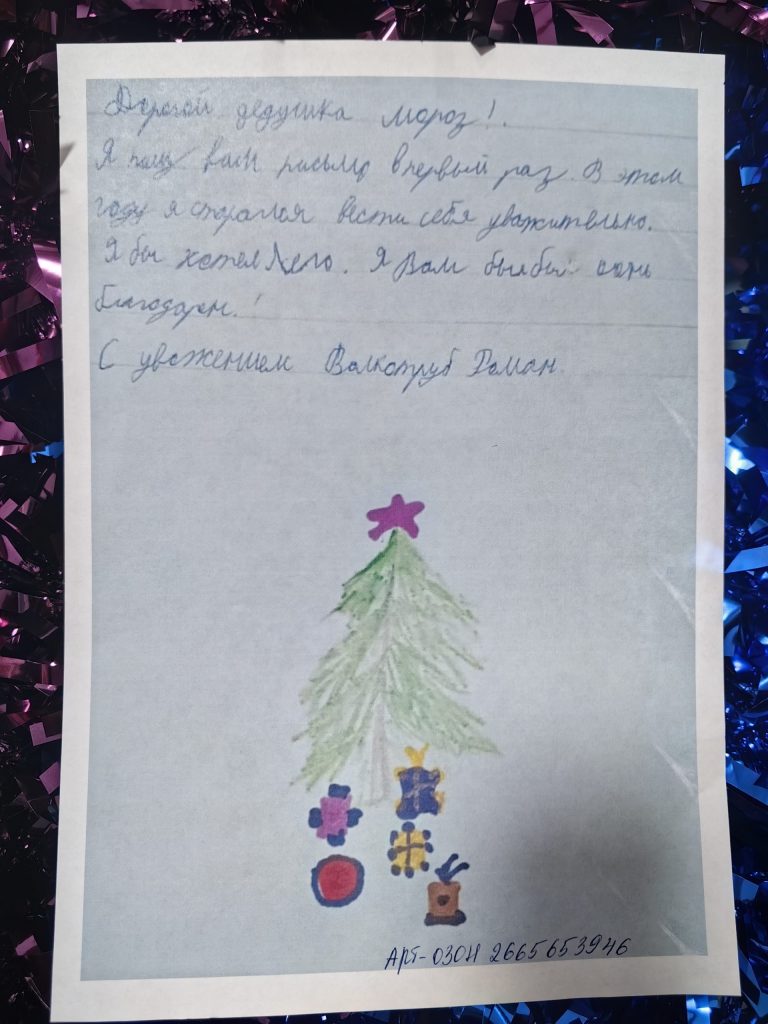 Дорогой дедушка мороз!.
Я пишу вам письмо впервый раз. В этом
году я старался вести себя уважительно.
Я бы хотел Лего. Я Вам был бы очень
благодарен.!
С уважением Роман
Арт-ОЗОН 2665653946